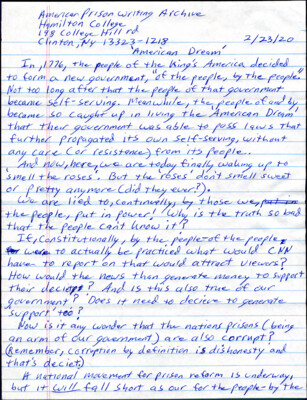 American Prison Writing Archive
Hamilton College
198 College Hill rd
Clinton, NY 13323-1218 2/23/20
'American Dream'
In, 1776, the people of the King's America decided
to form a new government, "of the people, by the people".
Not too long after that the people of that government
became self-serving. Meanwhile, the people of and by
became so caught up in living the 'American Dream',
that their government was able to pass laws that
further propagated its own self-serving, without
any care (or resistence) from its people.
And now, here, we are today finally waking up to
'smell the roses'. But the roses don't smell sweet
or pretty anymore (did they ever?).
We are lied to, continually, by those we,
the people, put in power! Why is the truth so bad
that the people can't know it?
If, Constitutionally, by the people-of the people,
were to actually be practiced what would CNN
have to report on that would attract viewers?
How would the news then generate money to support
their deciet? And is this also true of our
government? Does it need to decieve to generate
support too?
Now is it any wonder that the nations prisons (being
an arm of our government) are also corrupt?
(Remember, corruption by definition is dishonesty and
that's deciet).
A national movement for prison reform is underway,
but it will fall short as our for the people-by the